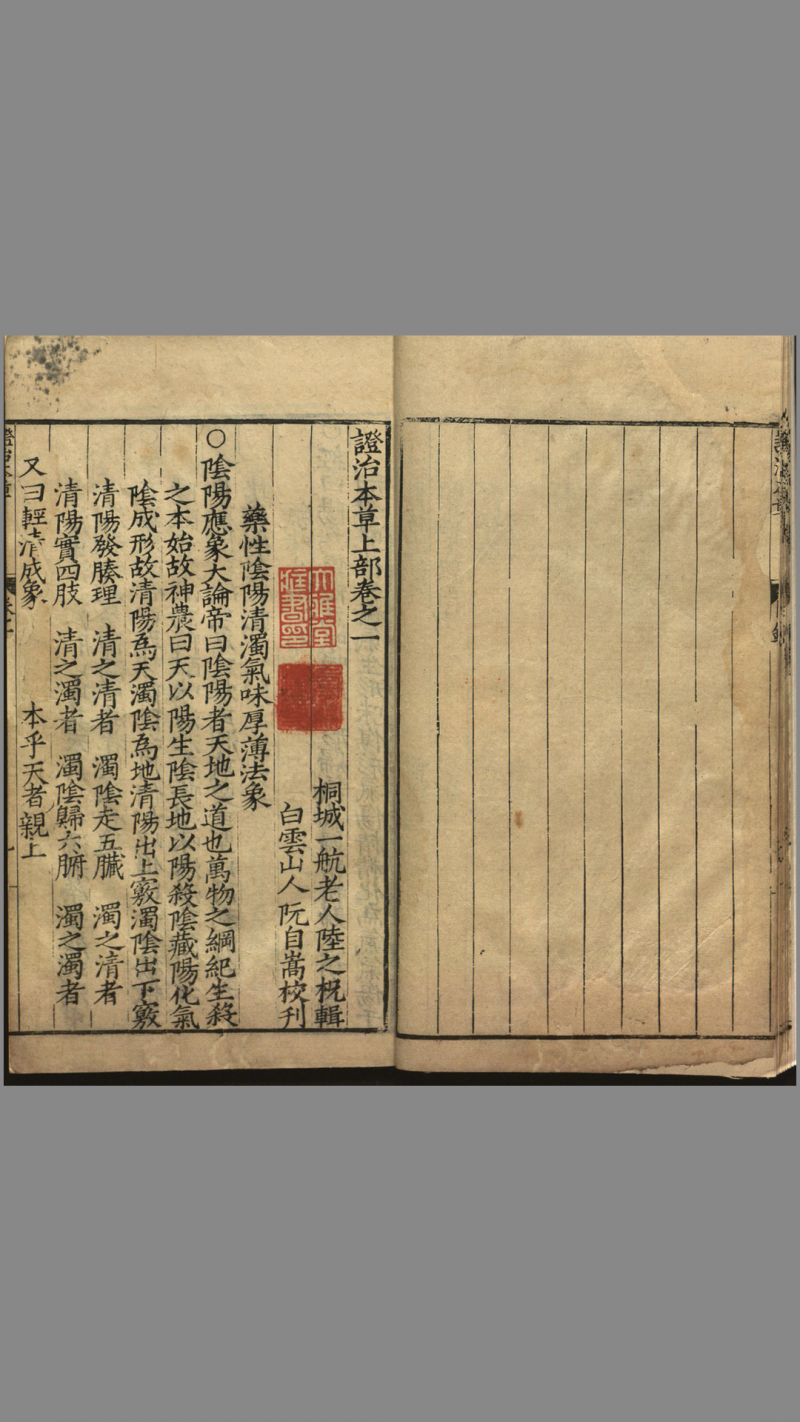 證治本草上部卷之一
桐城一航老人陸之柷輯
白雲山人阮自嵩校刊
藥性陰陽清濁氣味厚薄法象
○陰陽應象大論帝曰陰陽者天地之道也萬物之綱紀生殺
之本始故神農曰天以陽生陰長地以陽殺陰藏陽化氣
陰成形故清陽為天濁陰為地清陽出上竅濁陰出下竅
清陽發腠理 清之清者 濁陰走五臟 濁之清者
清陽實四肢 清之濁者 濁陰歸六腑 濁之濁者
又曰輕清成象 本乎天者親上
大雅堂